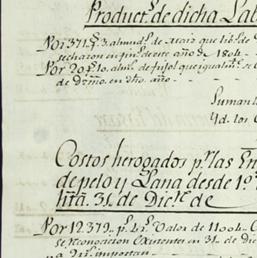 Product.s de dicha Lab
Por 371 f.s 3. almud.s de Maiz que lib.s de
secharon en fin de este año de 1804
Por 20 f.s 10. alm.s de frijol que igualm.te se
de Dzmo. en dho. año
Suman l
Yd. los C
Costos herogados p.r las En
de pelo y Lana desde 1.o
lita 31 de Dic.re de
Por 12379 p.s 4 r.s Valor de 1104 C
se reconocieron Existentes en 31. de Dic
importan